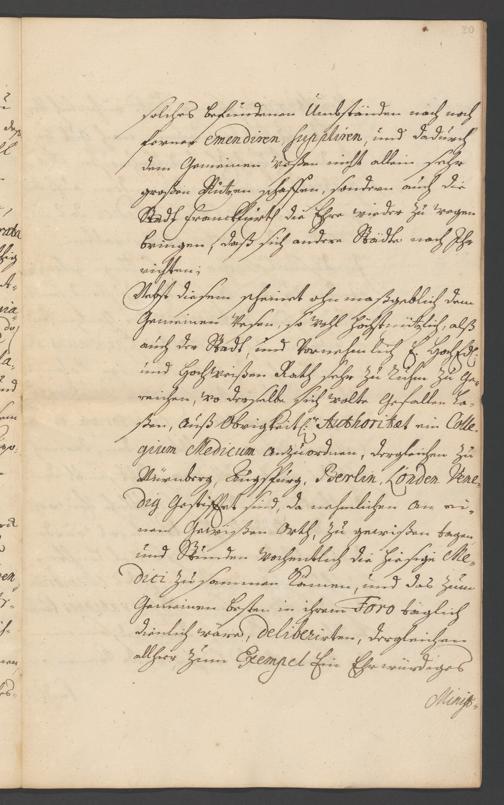 20
solches befundenen Umbständen nach noch
ferner emendiren suppliren, und dadurch
dem Gemeinen Weßen nicht allein sehr
großen Nutzen schaffen, sondern auch die
Stadt Franckfurth die Ehre wieder zu wegen
bringen, daß sich andere Städte nach Ihr
richten;
Nebst diesem scheinet ohn maßgeblich dem
Gemeinen Wesen, so wohl höchstnützlich, alß
auch der Stadt, und Vornehmlich E. HochEdl:
und Hochweißen Rath sehr zu Ruhm zu Ge-
reichen, wo derselbe sich wolte Gefallen la-
ßen, auß Obrigkeitl: Authoritæt ein Colle-
gium Medicum anzuordnen, dergleichen zu
Nürnberg, Augspurg, Berlin, Londen Vene-
dig Gestifftet sind, da nehmlichen an ei-
nem Gewißen Orth, zu gewißen tagen
und Stunden wochentlich die hiesige Me-
dici zusammen kämen, und das zum
Gemeinen besten in ihrem Foro täglich
dienlich wäre, deliberirten, dergleichen
allhier zum Exempel Ein Ehrwürdiges
Minist-